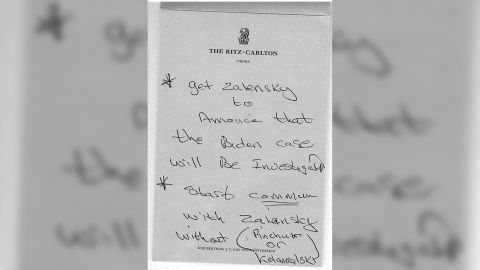 THE RITZ-CARLTON
VIENNA
* get Zalensky
to
Annouce that
the Biden case
will Be Investigated
* start commun
with Zalensky
without (Pinchuk
or
Kolomoisky)